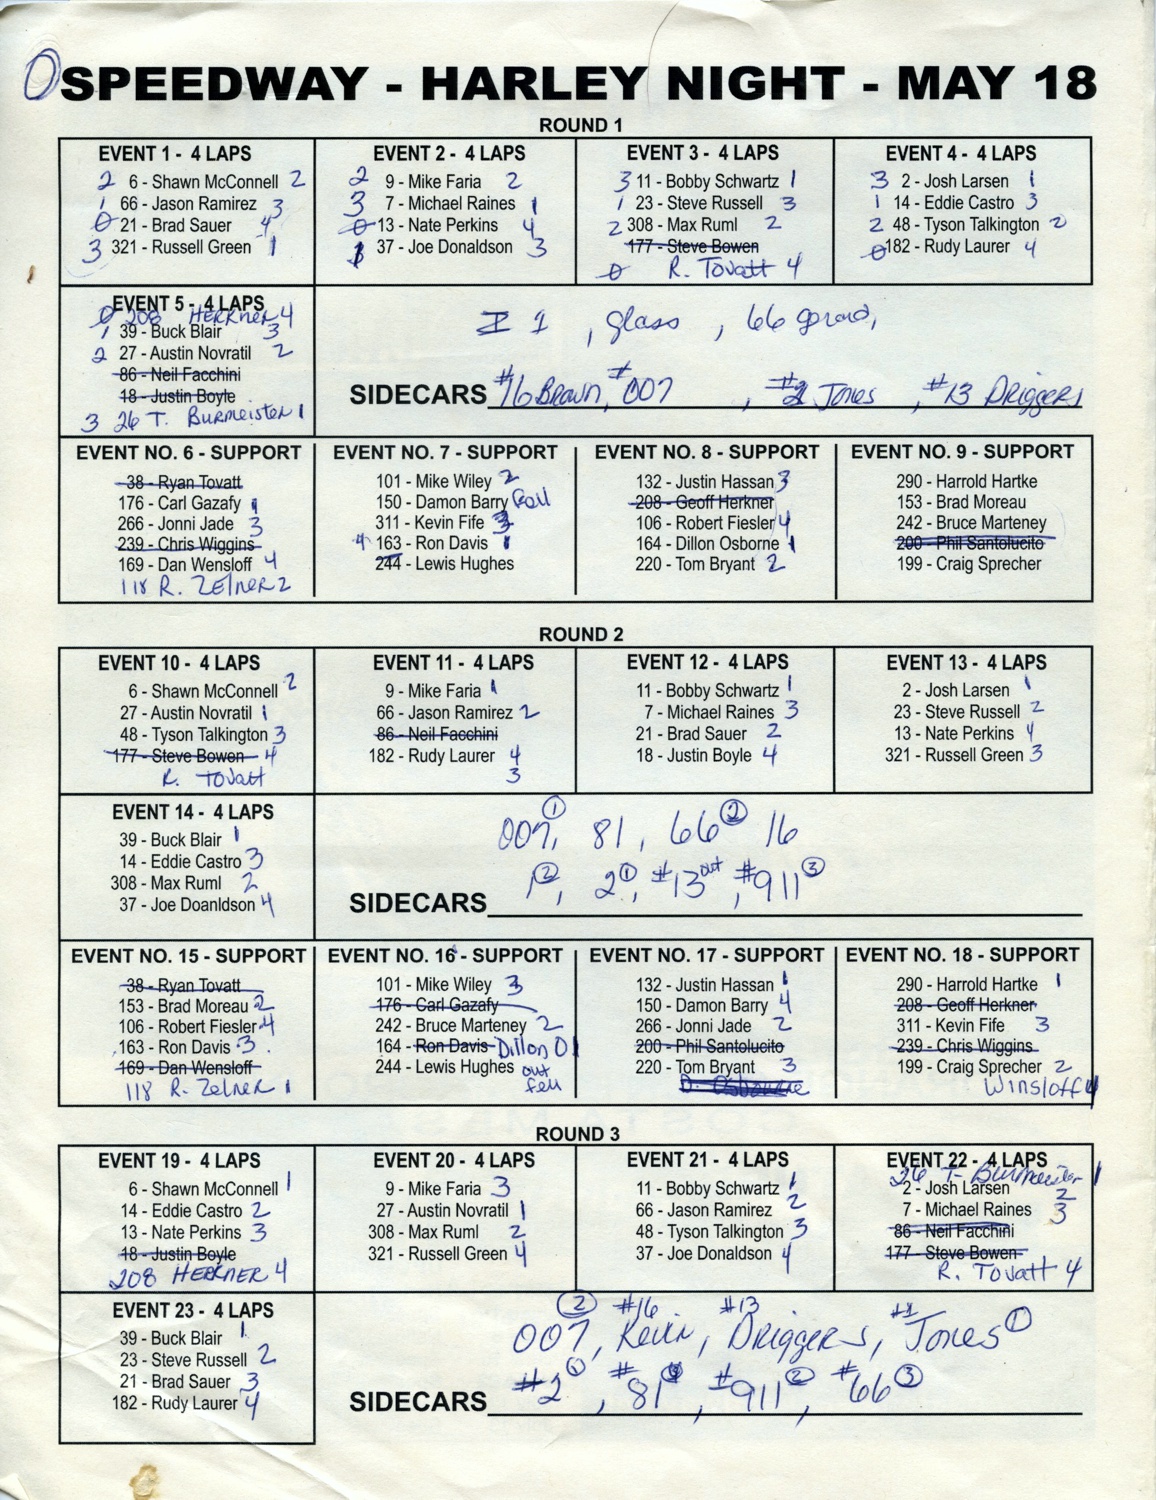 SPEEDWAY - HARLEY NIGHT - MAY 18
ROUND 1
EVENT 1 - 4 LAPS
2 6 - Shawn McConnell 2
1 66 - Jason Ramirez 3
0 21 - Brad Sauer 4
3 321 - Russell Green 1
EVENT 2 - 4 LAPS
2 9 - Mike Faria 2
3 7 - Michael Raines 1
0 13 - Nate Perkins 4
1 37 - Joe Donaldson 3
EVENT 3 - 4 LAPS
3 11 - Bobby Schwartz 1
1 23 - Steve Russell 3
2 308 - Max Ruml 2
177 - Steve Bowen
0 R. Tovatt 4
EVENT 4 - 4 LAPS
3 2 - Josh Larsen 1
1 14 - Eddie Castro 3
2 48 - Tyson Talkington 2
0 182 - Rudy Laurer 4
EVENT 5 - 4 LAPS
0 208 HERKNER 4
1 39 - Buck Blair 3
2 27 - Austin Novratil 2
86 - Neil Facchini
18 - Justin Boyle
3 26 T. Burmeister 1
1, glass, 66
SIDECARS #16 Brown, #007, Jones, #13 Driggers
EVENT NO. 6 - SUPPORT
38 - Ryan Tovatt
176 - Carl Gazafy 1
266 - Jonni Jade 3
239 - Chris Wiggins
169 - Dan Wensloff 4
118 R. Zelner 2
EVENT NO. 7 - SUPPORT
101 - Mike Wiley 2
150 - Damon Barry Fell
311 - Kevin Fife 3
4 163 - Ron Davis 1
244 - Lewis Hughes
EVENT NO. 8 - SUPPORT
132 - Justin Hassan 3
208 - Geoff Herkner
106 - Robert Fiesler 4
164 - Dillon Osborne 1
220 - Tom Bryant 2
EVENT NO. 9 - SUPPORT
290 - Harrold Hartke
153 - Brad Moreau
242 - Bruce Marteney
200 - Phil Santolucito
199 - Craig Sprecher
ROUND 2
EVENT 10 - 4 LAPS
6 - Shawn McConnell 2
27 - Austin Novratil 1
48 - Tyson Talkington 3
177 - Steve Bowen 4
R. Tovatt
EVENT 11 - 4 LAPS
9 - Mike Faria 1
66 - Jason Ramirez 2
86 - Neil Facchini
182 - Rudy Laurer 4
3
EVENT 12 - 4 LAPS
11 - Bobby Schwartz 1
7 - Michael Raines 3
21 - Brad Sauer 2
18 - Justin Boyle 4
EVENT 13 - 4 LAPS
2 - Josh Larsen 1
23 - Steve Russell 2
13 - Nate Perkins 4
321 - Russell Green 3
EVENT 14 - 4 LAPS
39 - Buck Blair 1
14 - Eddie Castro 3
308 - Max Ruml 2
37 - Joe Doanldson 4
007 1, 81, 66 2 16
1 2, 2 1, #13 out, #911 3
SIDECARS
EVENT NO. 15 - SUPPORT
38 - Ryan Tovatt
153 - Brad Moreau 2
106 - Robert Fiesler 4
163 - Ron Davis 3
169 - Dan Wensloff
118 R. Zelner 1
EVENT NO. 16 - SUPPORT
101 - Mike Wiley 3
176 - Carl Gazafy
242 - Bruce Marteney 2
164 - Ron Davis Dillon O 1
244 - Lewis Hughes out
fell
EVENT NO. 17 - SUPPORT
132 - Justin Hassan 1
150 - Damon Barry 4
266 - Jonni Jade 2
200 - Phil Santolucito
220 - Tom Bryant 3
EVENT NO. 18 - SUPPORT
290 - Harrold Hartke 1
208 - Geoff Herkner
311 - Kevin Fife 3
239 - Chris Wiggins
199 - Craig Sprecher 2
Winsloff 4
ROUND 3
EVENT 19 - 4 LAPS
6 - Shawn McConnell 1
14 - Eddie Castro 2
13 - Nate Perkins 3
18 - Justin Boyle
208 HERKNER 4
EVENT 20 - 4 LAPS
9 - Mike Faria 3
27 - Austin Novratil 1
308 - Max Ruml 2
321 - Russell Green 4
EVENT 21 - 4 LAPS
11 - Bobby Schwartz 1
66 - Jason Ramirez 2
48 - Tyson Talkington 3
37 - Joe Donaldson 4
EVENT 22 - 4 LAPS
26 T. Burmeister 1
2 - Josh Larsen 2
7 - Michael Raines 3
86 - Neil Facchini
177 - Steve Bowen
R. Tovatt 4
EVENT 23 - 4 LAPS
39 - Buck Blair 1
23 - Steve Russell 2
21 - Brad Sauer 3
182 - Rudy Laurer 4
2 #16 #13 #1
007, Kevin, Driggers, Jones 1
#2 1, #81, #911 2, #66 3
SIDECARS